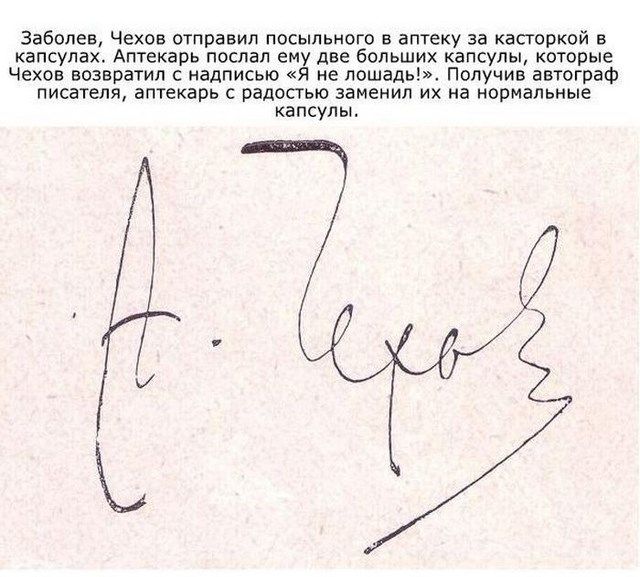 Заболев, Чехов отправил посыльного в аптеку за касторкой в
капсулах. Аптекарь послал ему две больших капсулы, которые
Чехов возвратил с надписью «Я не лошадь!». Получив автограф
писателя, аптекарь с радостью заменил их на нормальные
капсулы.
А. Чехов